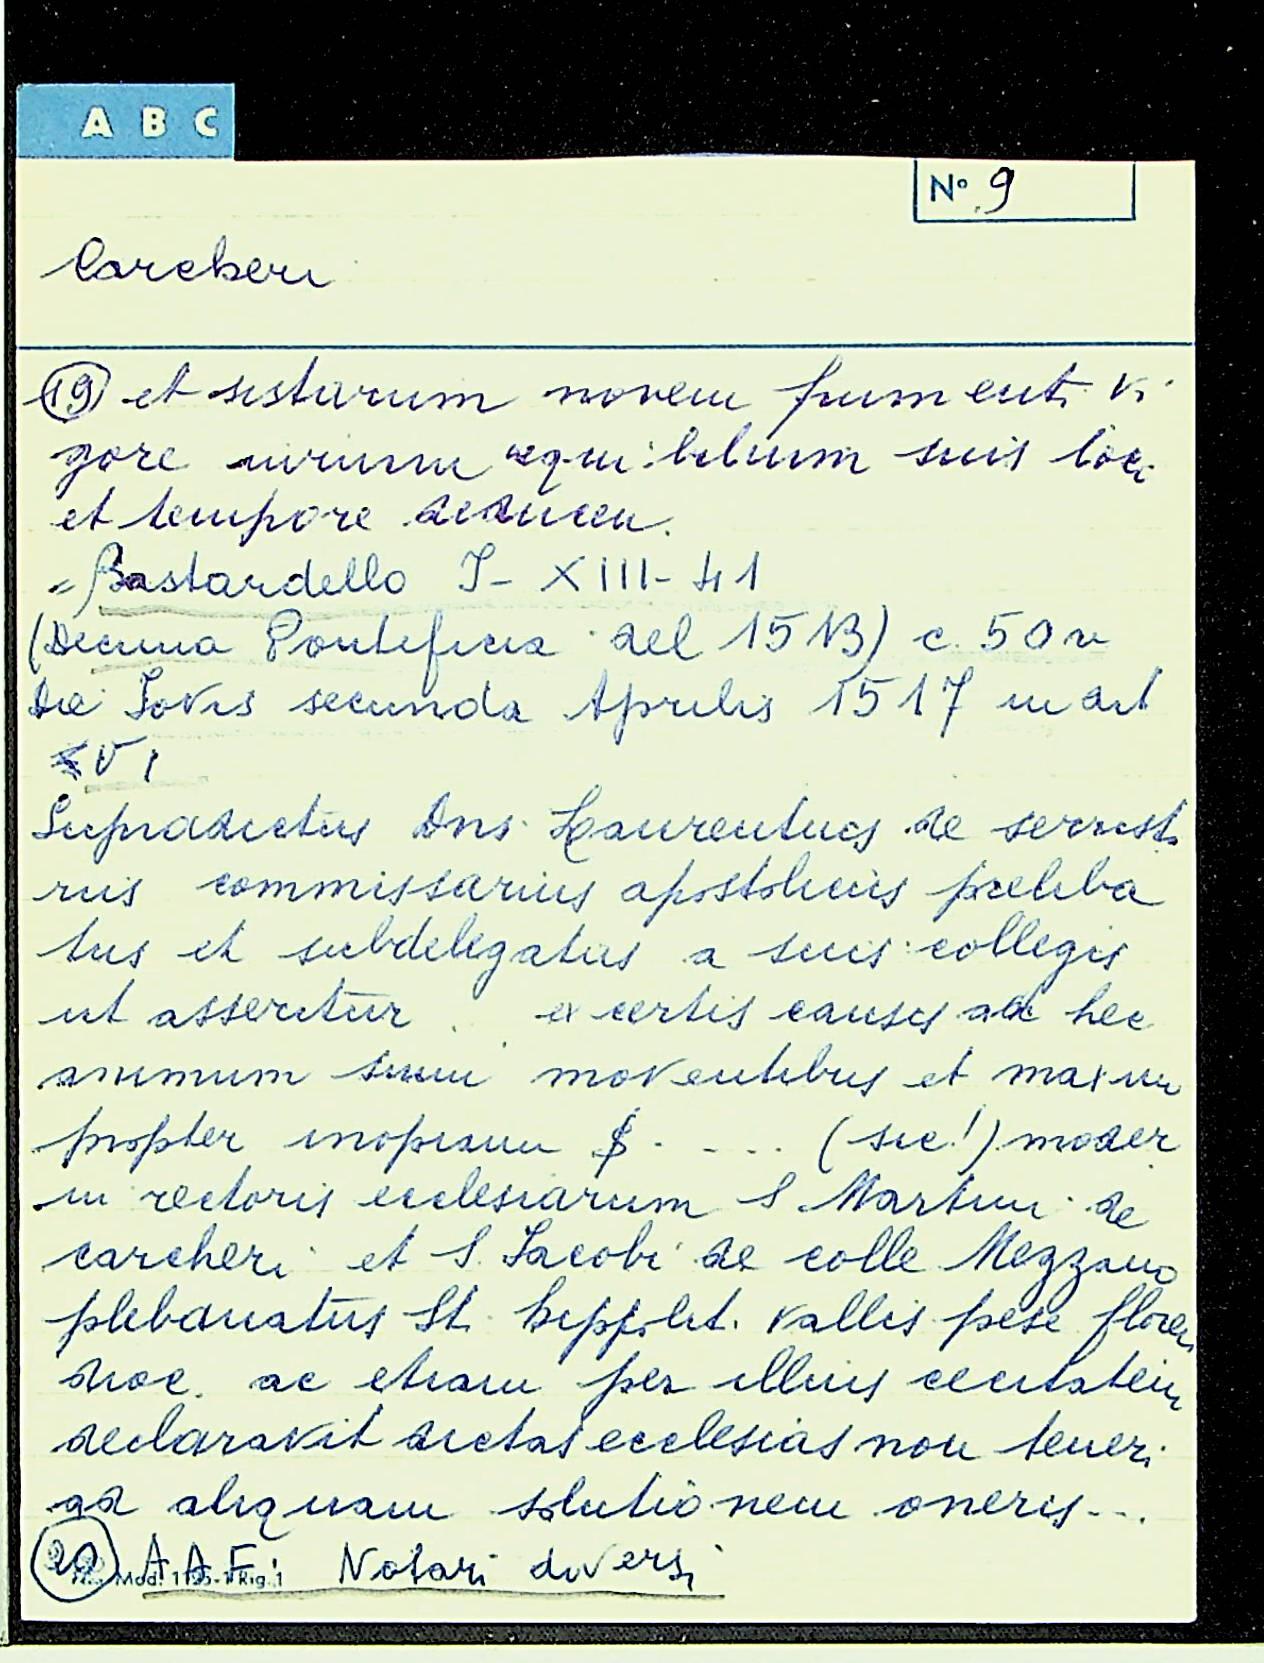 A B C
N° 9
Carcheri
(19) et sistarum novem frumenti vi
gore iurium sequibilium suis loci
et tempore deducen.
= Bastardello I- XIII- 41
(Decima Pontificia del 1513) c. 50 v
Die Jovis secunda Aprilis 1517 in dict
XVI
Supradictus Dns. Laurentius de serrist
riis commissarius apostolicus preliba
tus et subdelegatus a suis collegis
ut asseritur. ex certis causis ad hec
animum suum moventibus et maxim
propter inopiam $. ... (sic!) moder
ni rectoris ecclesiarum S. Martini de
carcheri et S. Jacobi de colle Mezzano
plebanatus St. hippolit. vallis pese floren
dioc. ac etiam per illius cecitatem
declaravit dictas ecclesias non teneri
ad aliquam solutionem oneris...
(20) A A F: Notari diversi
Mod. 1195-1 Rig. 1